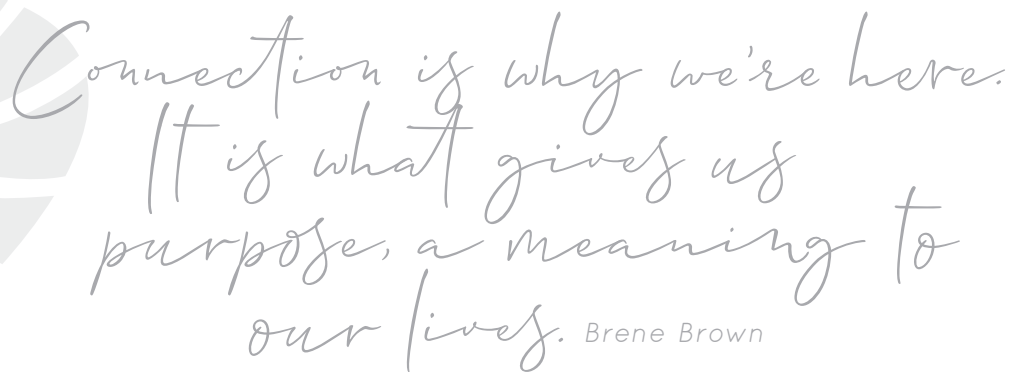 Connection is why we're here.
It is what gives us
purpose, a meaning to
our lives. Brene Brown